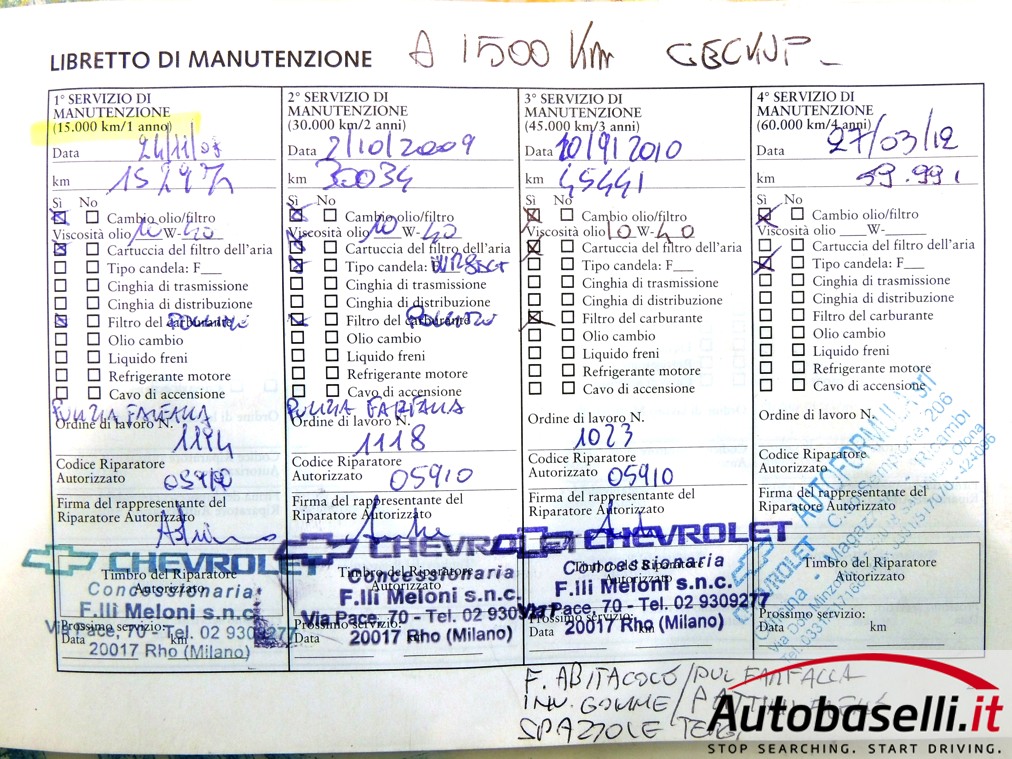 LIBRETTO DI MANUTENZIONE A 1500 Km
1° SERVIZIO DI
MANUTENZIONE
(15.000 km/1 anno)
Data 24/11/08
km 15297
Sì No
Cambio olio/filtro
Viscosità olio 10 W-40
Cartuccia del filtro dell'aria
Tipo candela: F___
Cinghia di trasmissione
Cinghia di distribuzione
Filtro del carburante
Olio cambio
Liquido freni
Refrigerante motore
Cavo di accensione
PULIZIA FARFALLA
Ordine di lavoro N.
1114
Codice Riparatore
Autorizzato 05910
Firma del rappresentante del
Riparatore Autorizzato
CHEVROLET
Timbro del Riparatore
Autorizzato
Concessionaria
F.lli Meloni s.n.c.
Via Pace, 70 - Tel. 02 9309277
20017 Rho (Milano)
Prossimo servizio:
Data km
2° SERVIZIO DI
MANUTENZIONE
(30.000 km/2 anni)
Data 2/10/2009
km 30034
Sì No
Cambio olio/filtro
Viscosità olio 10 W-40
Cartuccia del filtro dell'aria
Tipo candela:
Cinghia di trasmissione
Cinghia di distribuzione
Filtro del carburante
Olio cambio
Liquido freni
Refrigerante motore
Cavo di accensione
PULIZIA FARFALLA
Ordine di lavoro N.
1118
Codice Riparatore
Autorizzato 05910
Firma del rappresentante del
Riparatore Autorizzato
CHEVROLET
Timbro del Riparatore
Autorizzato
Concessionaria
F.lli Meloni s.n.c.
Via Pace, 70 - Tel. 02 9309277
20017 Rho (Milano)
Prossimo servizio:
Data km
3° SERVIZIO DI
MANUTENZIONE
(45.000 km/3 anni)
Data 10/9/2010
km 45441
Sì No
Cambio olio/filtro
Viscosità olio 10 W-40
Cartuccia del filtro dell'aria
Tipo candela: F___
Cinghia di trasmissione
Cinghia di distribuzione
Filtro del carburante
Olio cambio
Liquido freni
Refrigerante motore
Cavo di accensione
Ordine di lavoro N.
1023
Codice Riparatore
Autorizzato 05910
Firma del rappresentante del
Riparatore Autorizzato
CHEVROLET
Timbro del Riparatore
Autorizzato
Concessionaria
F.lli Meloni s.n.c.
Via Pace, 70 - Tel. 02 9309277
20017 Rho (Milano)
Prossimo servizio:
Data km
4° SERVIZIO DI
MANUTENZIONE
(60.000 km/4 anni)
Data 27/03/12
km 59.991
Sì No
Cambio olio/filtro
Viscosità olio ____W-____
Cartuccia del filtro dell'aria
Tipo candela: F___
Cinghia di trasmissione
Cinghia di distribuzione
Filtro del carburante
Olio cambio
Liquido freni
Refrigerante motore
Cavo di accensione
Ordine di lavoro N.
Codice Riparatore
Autorizzato
Firma del rappresentante del
Riparatore Autorizzato
CHEVROLET
C.so Sempione, 206
Timbro del Riparatore
Autorizzato
Prossimo servizio:
Data km
F. ABITACOLO / PUL FARFALLA
INV. GOMME /
SPAZZOLE TERGI
Autobaselli.it
STOP SEARCHING. START DRIVING.